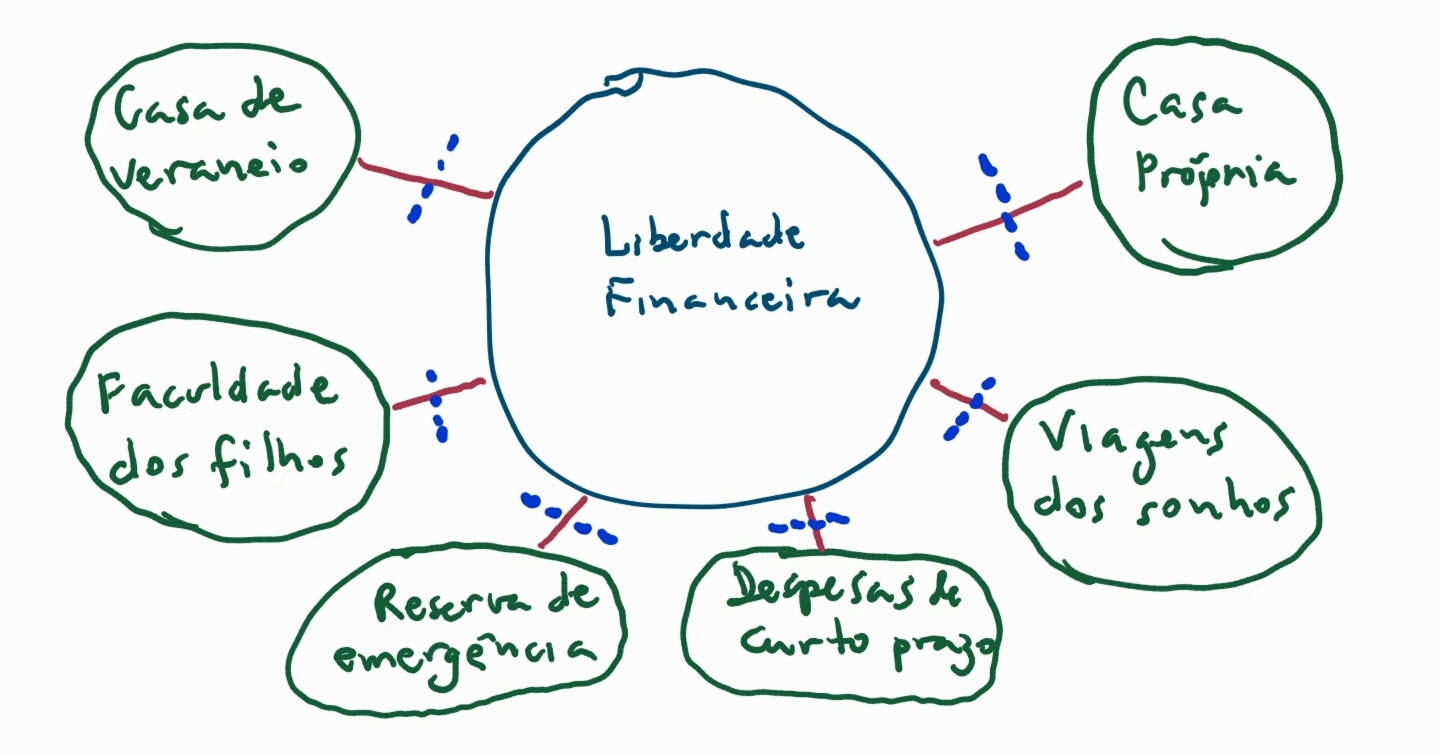 Casa de
veraneio
Liberdade
Financeira
Casa
Própria
Faculdade
dos filhos
Viagens
dos sonhos
Reserva de
emergência
Despesas de
curto prazo